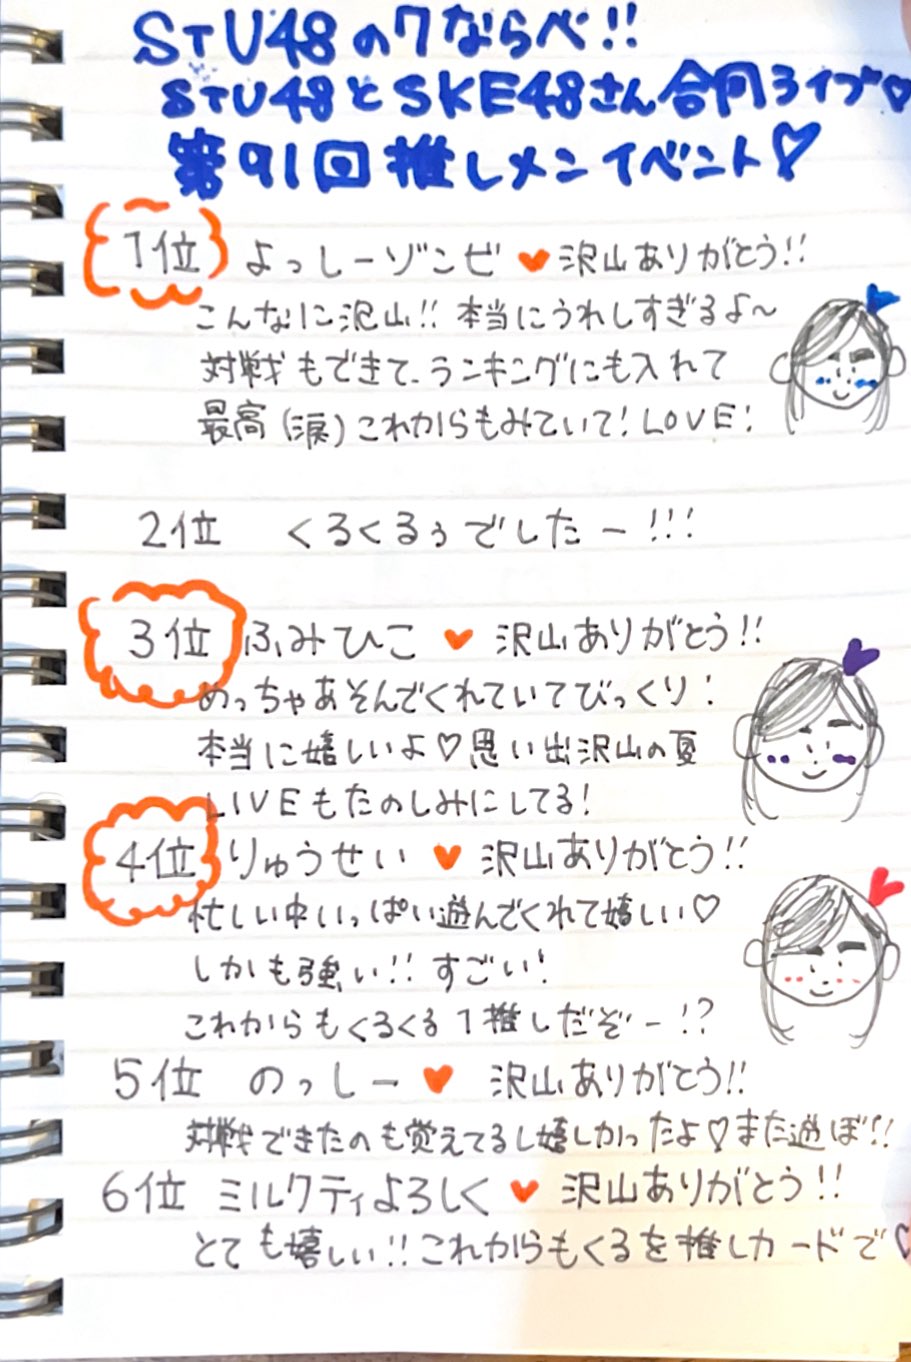 STU48の7ならべ!!
STU48とSKE48さん合同ライブ♡
第91回推しメンイベント♡
1位 よっしーゾンビ ♥ 沢山ありがとう!!
こんなに沢山!! 本当にうれしすぎるよ〜
対戦もできて、ランキングにも入れて
最高(涙)これからもみていて! LOVE!
2位 くるくるぅでしたー!!!
3位 ふみひこ ♥ 沢山ありがとう!!
めっちゃあそんでくれていてびっくり!
本当に嬉しいよ♡思い出沢山の夏
LIVEもたのしみにしてる!
4位 りゅうせい ♥ 沢山ありがとう!!
忙しい中いっぱい遊んでくれて嬉しい♡
しかも強い!! すごい!
これからもくるくる1推しだぞー!?
5位 のっしー ♥ 沢山ありがとう!!
対戦できたのも覚えてるし嬉しかったよ♡また遊ぼ!!
6位 ミルクティよろしく ♥ 沢山ありがとう!!
とても嬉しい!!これからもくるを推しカードで♡